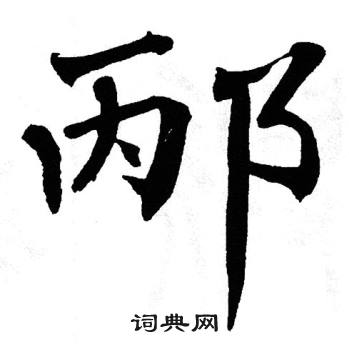 邴
词典网